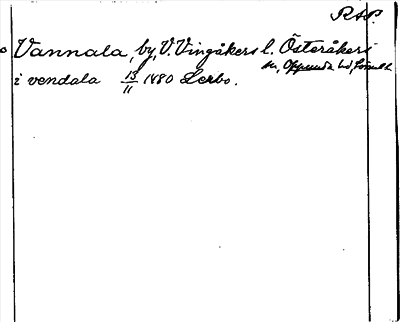 RAP.
Vannala, by, V. Vingåkers l. Österåkers
sn, Oppunda hd,
i vendala 13/11 1480 Lerbo.